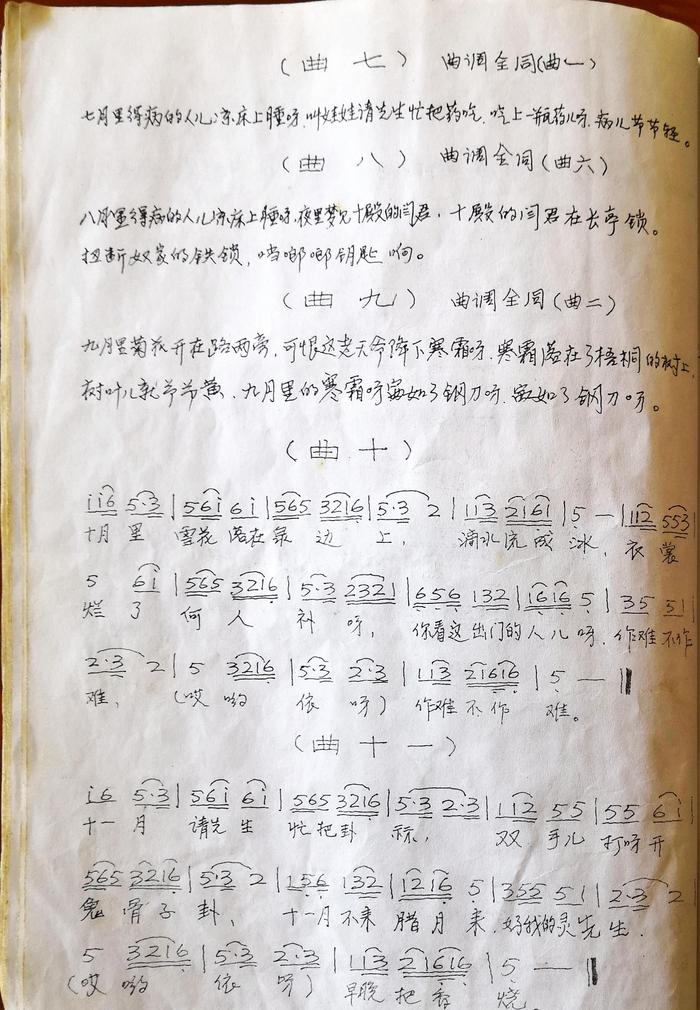 （曲 七） 曲调全同(曲一)
七月里得病的人儿凉床上睡呀,叫娃娃请先生忙把药吃,吃上一瓶药儿呀,病儿节节轻。
（曲 八） 曲调全同(曲六)
八月里得病的人儿凉床上睡呀,夜里梦见十殿的闫君,十殿的闫君在长亭锁。
扭断奴家的铁锁,当啷啷钥匙响。
（曲 九） 曲调全同(曲二)
九月里菊花开在路两旁,可恨这老天爷降下寒霜呀,寒霜落在了梧桐的树上,
树叶儿就节节黄,九月里的寒霜呀赛如了钢刀呀,赛如了钢刀呀。
（曲 十）
i i 6 5·3 | 5 6 i 6 i | 5 6 5 3 2 1 6 | 5·3 2 | 1 1 3 2 1 6 1 | 5 — | 1 1 2 5 5 3 |
十月 里 雪花 落在 泉 边 上, 滴水 流成 冰, 衣 裳
5 6 i | 5 6 5 3 2 1 6 | 5·3 2 3 2 1 | 6 5 6 1 3 2 | 1 6 1 6 5 | 3 5 5 1 |
烂 了 何 人 补 呀, 你看这 出门的 人儿 呀, 作难 不作
2·3 2 | 5 3 2 1 6 | 5·3 2·3 | 1 1 3 2 1 6 1 6 | 5 — ‖
难, (哎 哟 依 呀) 作难 不作 难。
（曲 十 一）
i 6 5·3 | 5 6 i 6 i | 5 6 5 3 2 1 6 | 5·3 2·3 | 1 1 2 5 5 | 5 5 6 i |
十一 月 请先 生 忙把 卦 称, 双 手儿 打呀 开
5 6 5 3 2 1 6 | 5·3 2 | 1 5 6 1 3 2 | 1 2 1 6 5 | 3 5 5 5 1 | 2·3 2 |
鬼 骨子 卦, 十一月 不来 腊月 来, 好我的灵先 生,
5 3 2 1 6 | 5·3 2·3 | 1 1 3 2 1 6 1 6 | 5 — ‖
(哎 哟 依 呀) 早晚 把 香 烧。